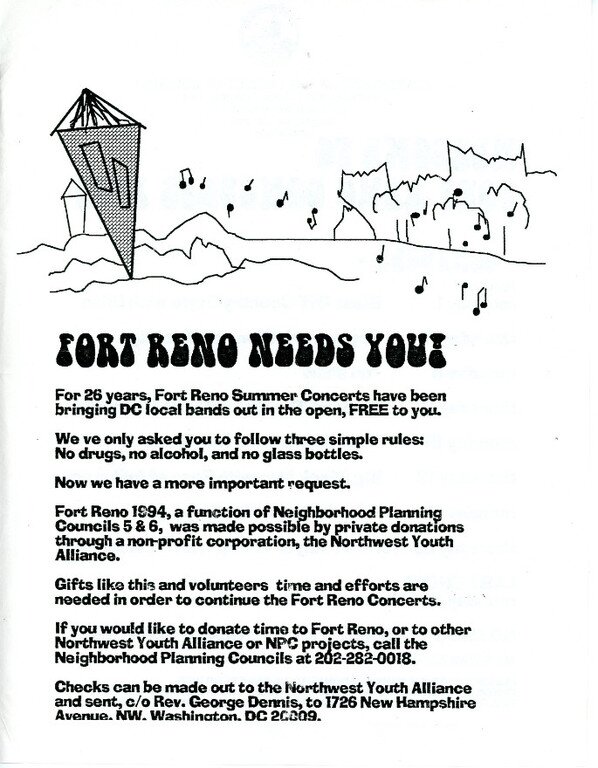 FORT RENO NEEDS YOU!
For 26 years, Fort Reno Summer Concerts have been
bringing DC local bands out in the open, FREE to you.
We ve only asked you to follow three simple rules:
No drugs, no alcohol, and no glass bottles.
Now we have a more important request.
Fort Reno 1994, a function of Neighborhood Planning
Councils 5 & 6, was made possible by private donations
through a non-profit corporation, the Northwest Youth
Alliance.
Gifts like this and volunteers time and efforts are
needed in order to continue the Fort Reno Concerts.
If you would like to donate time to Fort Reno, or to other
Northwest Youth Alliance or NPC projects, call the
Neighborhood Planning Councils at 202-282-0018.
Checks can be made out to the Northwest Youth Alliance
and sent, c/o Rev. George Dennis, to 1726 New Hampshire
Avenue, NW, Washington, DC 20009.